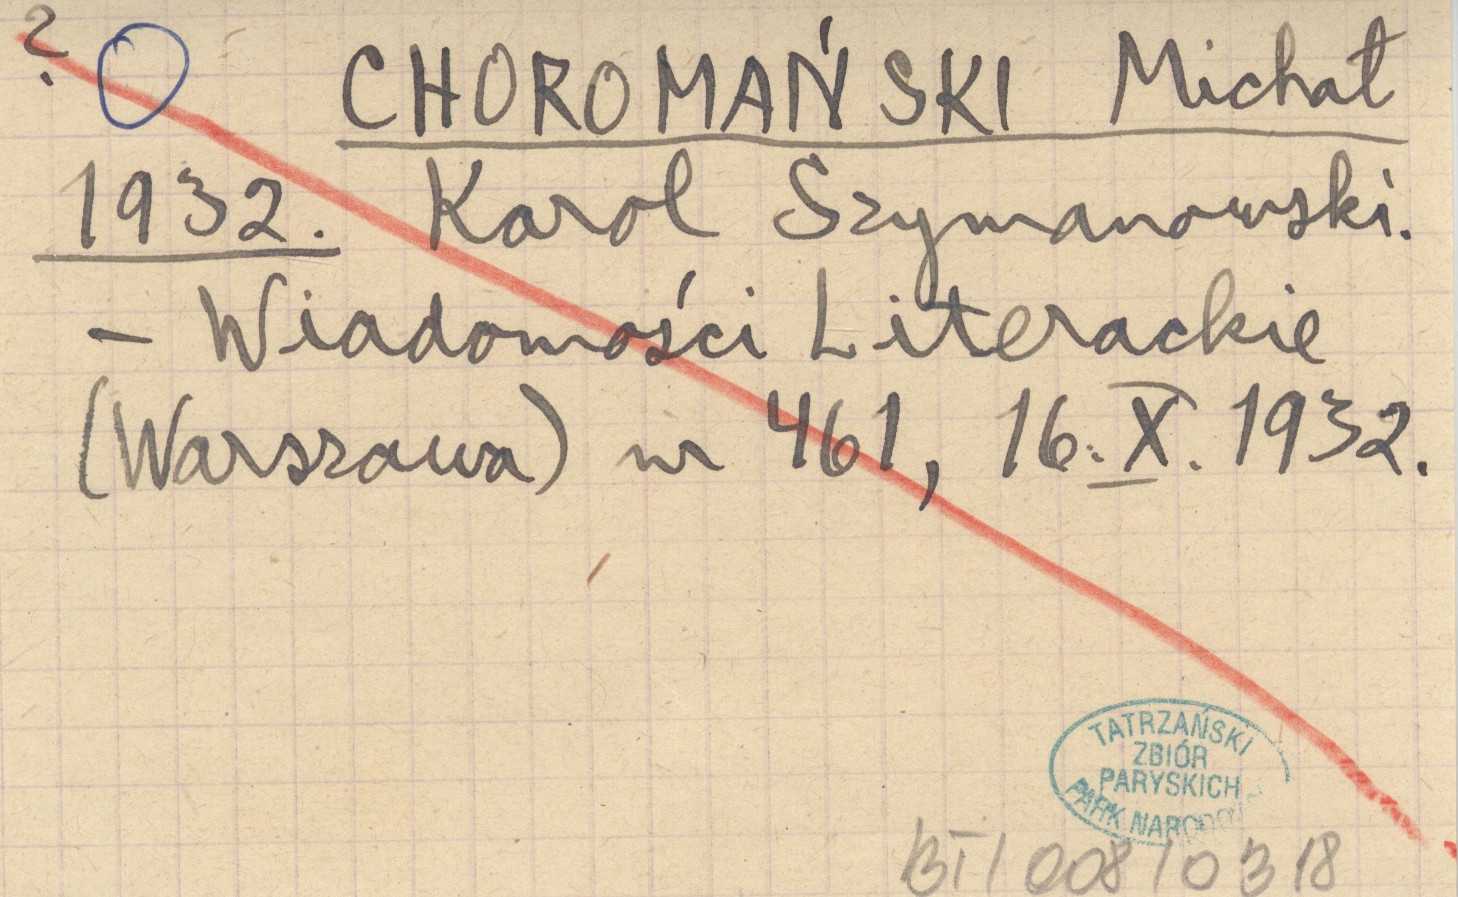 ?
CHOROMAŃSKI Michał
1932. Karol Szymanowski.
– Wiadomości Literackie
(Warszawa) nr 461, 16.X.1932.
TATRZAŃSKI
ZBIÓR
PARYSKICH
PARK NARODOWY
BTI 008 10318